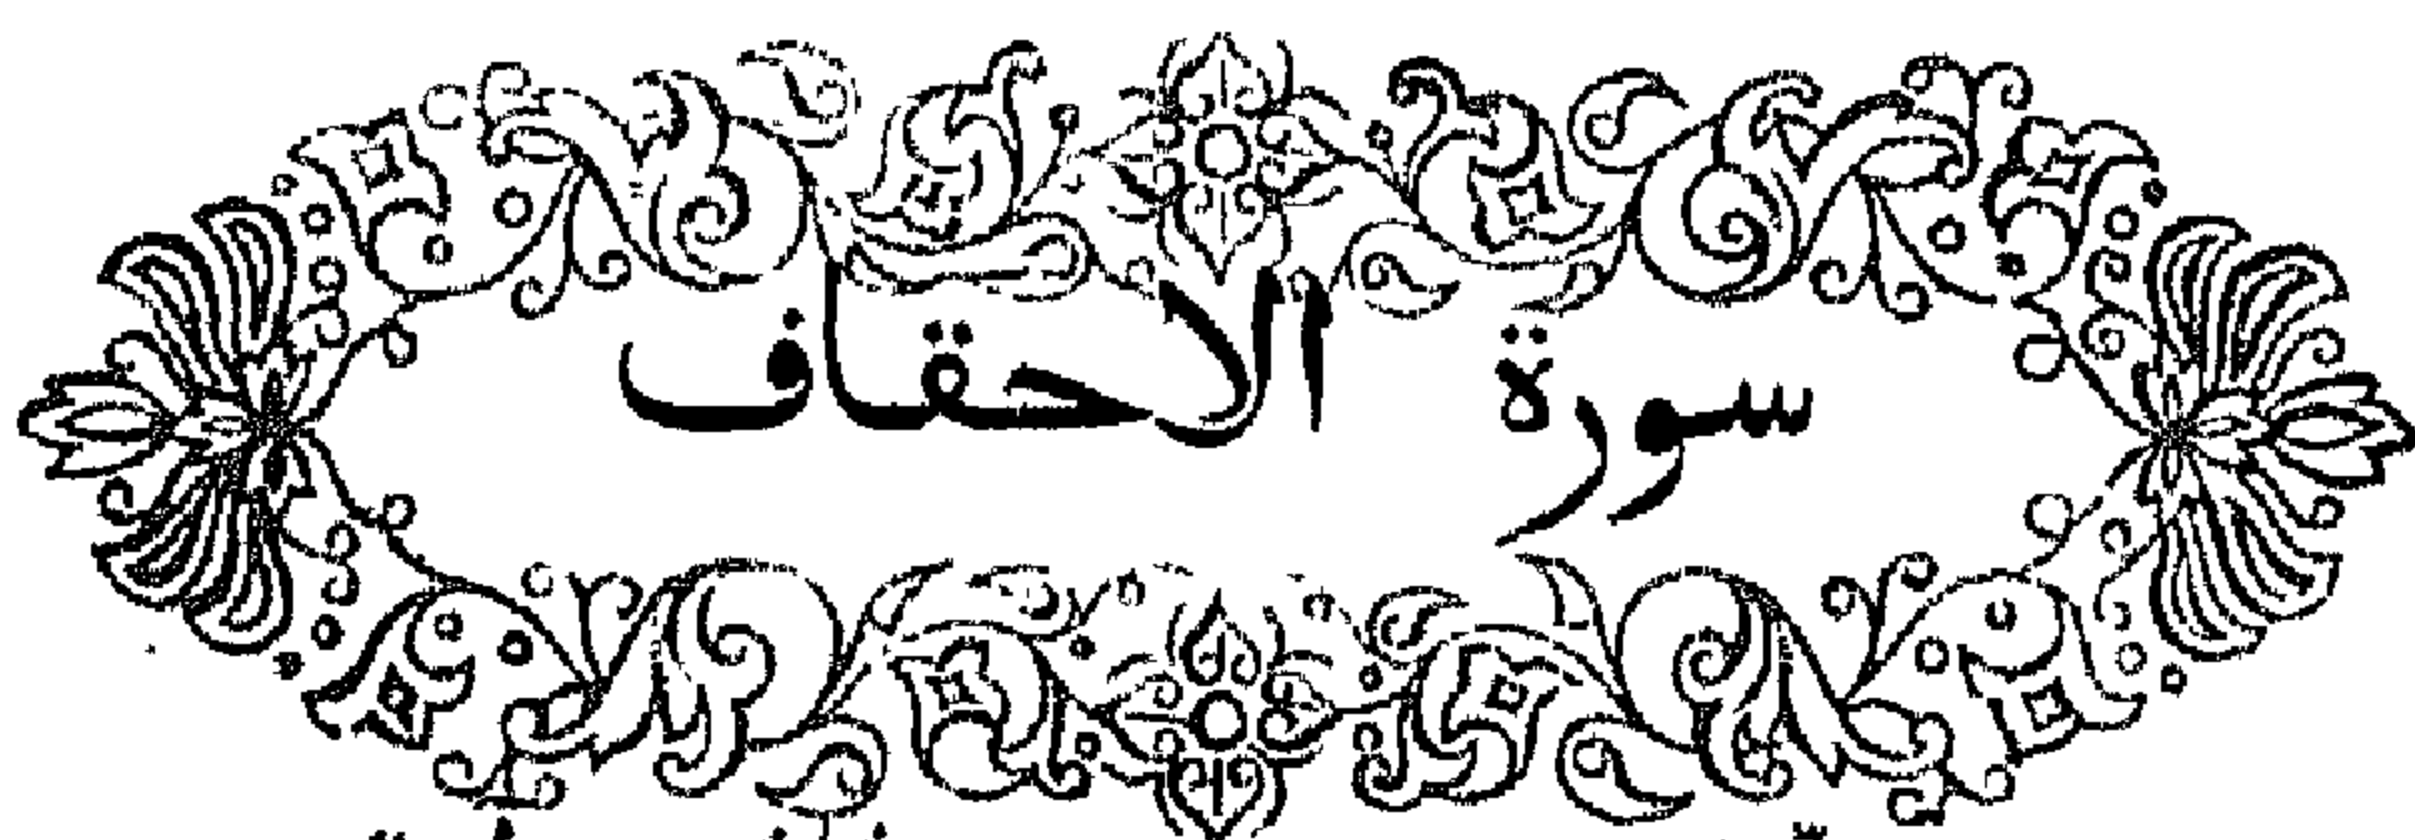 سورة الاحقاف